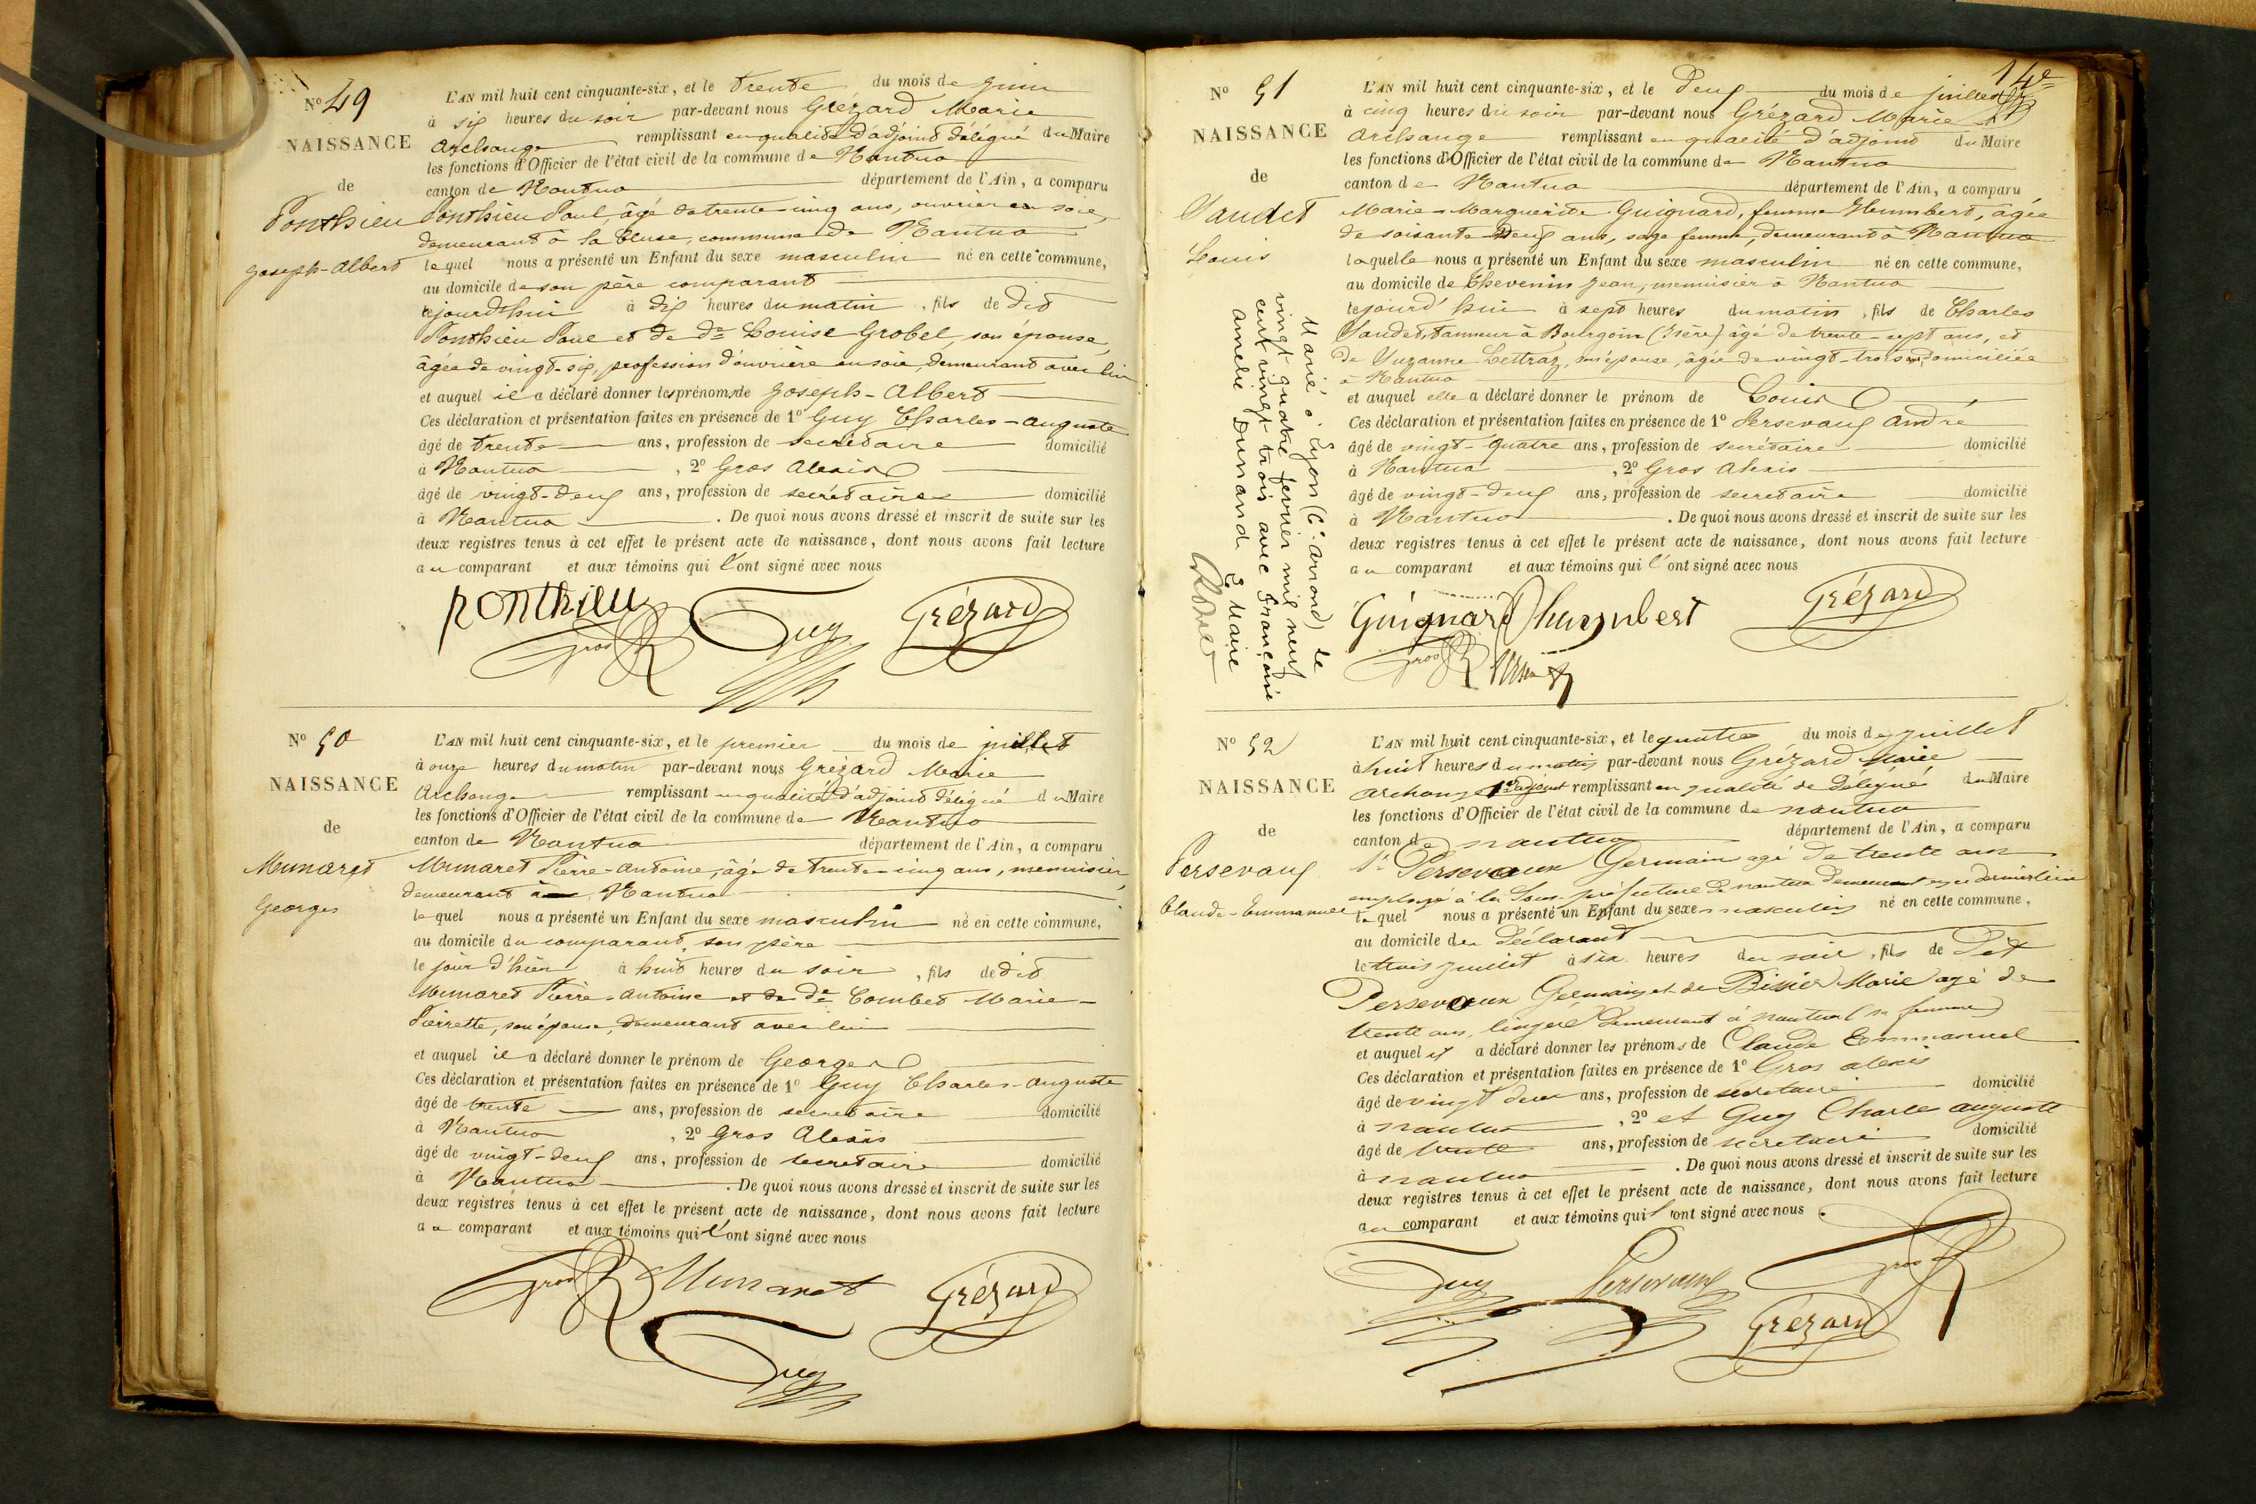 Nº 49
NAISSANCE
de
Ponthieu
Joseph-Albert
L'AN mil huit cent cinquante-six, et le trente du mois de juin
à six heures du soir par-devant nous Grézard Marie
Archange remplissant en qualité d'adjoint délégué du Maire
les fonctions d'Officier de l'état civil de la commune de Nantua
canton de Nantua département de l'Ain, a comparu
Ponthieu Paul, âgé de trente-cinq ans, ouvrier en soie,
demeurant à la Cluse, commune de Nantua
lequel nous a présenté un Enfant du sexe masculin né en cette commune,
au domicile de son père comparant
cejourd'hui à dix heures du matin, fils de dit
Ponthieu Paul et de de Louise Grobel, son épouse,
âgée de vingt-six, profession d'ouvrière en soie, demeurant avec lui
et auquel il a déclaré donner les prénoms de Joseph-Albert
Ces déclaration et présentation faites en présence de 1º Guy Charles-Auguste
âgé de trente ans, profession de secrétaire domicilié
à Nantua, 2º Gros Alexis
âgé de vingt-deux ans, profession de secrétaire domicilié
à Nantua. De quoi nous avons dressé et inscrit de suite sur les
deux registres tenus à cet effet le présent acte de naissance, dont nous avons fait lecture
au comparant et aux témoins qui l'ont signé avec nous
Ponthieu Guy Grézard
Gros
Nº 50
NAISSANCE
de
Munaret
Georges
L'AN mil huit cent cinquante-six, et le premier du mois de juillet
à onze heures du matin par-devant nous Grézard Marie
Archange remplissant en qualité d'adjoint délégué du Maire
les fonctions d'Officier de l'état civil de la commune de Nantua
canton de Nantua département de l'Ain, a comparu
Munaret Pierre-Antoine, âgé de trente-cinq ans, menuisier,
demeurant à Nantua
lequel nous a présenté un Enfant du sexe masculin né en cette commune,
au domicile du comparant, son père
le jour d'hier à huit heures du soir, fils de dit
Munaret Pierre-Antoine et de de Combet Marie-
Pierrette, son épouse, demeurant avec lui
et auquel il a déclaré donner le prénom de Georges
Ces déclaration et présentation faites en présence de 1º Guy Charles-Auguste
âgé de trente ans, profession de secretaire domicilié
à Nantua, 2º Gros Alexis
âgé de vingt-deux ans, profession de secretaire domicilié
à Nantua. De quoi nous avons dressé et inscrit de suite sur les
deux registres tenus à cet effet le présent acte de naissance, dont nous avons fait lecture
au comparant et aux témoins qui l'ont signé avec nous
Gros Munaret Grézard
Guy
14e
Nº 51
NAISSANCE
de
Vaudet
Louis
Marié à Lyon (6e arrond) le
vingt quatre fevrier mil neuf
cent vingt trois avec Françoise
Amelie Dunand. Le Maire
L'AN mil huit cent cinquante-six, et le deux du mois de juillet
à cinq heures du soir par-devant nous Grézard Marie
Archange remplissant en qualité d'adjoint du Maire
les fonctions d'Officier de l'état civil de la commune de Nantua
canton de Nantua département de l'Ain, a comparu
Marie-Marguerite Guignard, femme Humbert, âgée
de soixante-deux ans, sage femme, demeurant à Nantua
laquelle nous a présenté un Enfant du sexe masculin né en cette commune,
au domicile de Thevenin Jean, menuisier à Nantua
cejourd'hui à sept heures du matin, fils de Charles
Vaudet, tanneur à Bourgoin (Isère) âgé de trente-sept ans, et
de Suzanne Lettraz, son épouse, âgée de vingt-trois ans, domiciliée
à Nantua
et auquel elle a déclaré donner le prénom de Louis
Ces déclaration et présentation faites en présence de 1º Persevaux André
âgé de vingt-quatre ans, profession de secrétaire domicilié
à Nantua, 2º Gros Alexis
âgé de vingt-deux ans, profession de secretaire domicilié
à Nantua. De quoi nous avons dressé et inscrit de suite sur les
deux registres tenus à cet effet le présent acte de naissance, dont nous avons fait lecture
au comparant et aux témoins qui l'ont signé avec nous
Guignard humbert Grézard
Gros
Nº 52
NAISSANCE
de
Persevaux
Claude-Emmanuel
L'AN mil huit cent cinquante-six, et le quatre du mois de juillet
à huit heures du matin par-devant nous Grézard Marie
Archange 1er adjoint remplissant en qualité de Délégué du Maire
les fonctions d'Officier de l'état civil de la commune de nantua
canton de nantua département de l'Ain, a comparu
Sr Persevaux Germain agé de trente ans
employé à la Sous-préfecture de nantua demeurant en ce dernier lieu
lequel nous a présenté un Enfant du sexe masculin né en cette commune,
au domicile du déclarant
le trois juillet à six heures du soir, fils de Dit
Persevaux Germain et de Bissier Marie agé de
trente ans, lingere demeurant à nantua (sa femme)
et auquel il a déclaré donner les prénoms de Claude Emmanuel
Ces déclaration et présentation faites en présence de 1º Gros alexis
âgé de vingt deux ans, profession de secretaire domicilié
à nantua, 2º et Guy Charle auguste
âgé de trente ans, profession de secretaire domicilié
à nantua. De quoi nous avons dressé et inscrit de suite sur les
deux registres tenus à cet effet le présent acte de naissance, dont nous avons fait lecture
au comparant et aux témoins qui l'ont signé avec nous.
Guy Persevaux Gros
Grézard